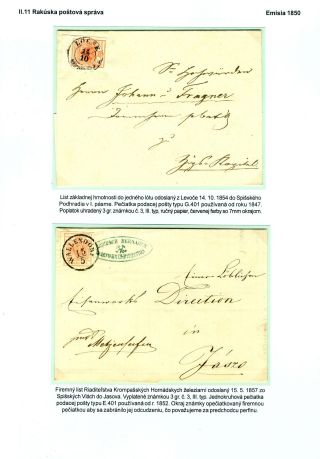 II.11 Rakúska poštová správa
Emisia 1850
14
10
Sr Hochwürden
Herrn Johann v. Fragner
zu
Zips Kapitel
List základnej hmotnosti do jedného lótu odoslaný z Levoče 14. 10. 1854 do Spišského
Podhradia v I. pásme. Pečiatka podacej pošty typu G.401 používaná od roku 1847.
Poplatok uhradený 3 gr. známkou č. 3, III. typ, ručný papier, červenej farby so 7mm okrajom.
WALLENDORF
15
5
Einer Löblichen
Eisenwerks Direction
in
Jászo
Firemný list Riaditeľstva Krompašských Hornádskych železiarní odoslaný 15. 5. 1857 zo
Spišských Vlách do Jasova. Vyplatené známkou 3 gr. č. 3, III. typ. Jednokruhová pečiatka
podacej pošty typu E.401 používaná od r. 1852. Okraj známky opečiatkovaný firemnou
pečiatkou aby sa zabránilo jej odcudzeniu, čo považujeme za predchodcu perfinu.